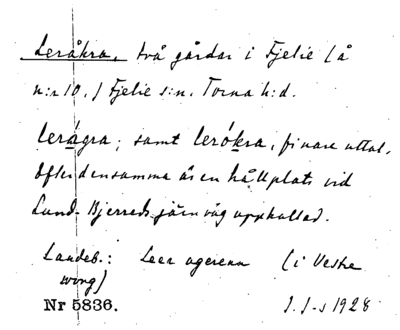 Leråkra, två gårdar i Fjelie (å
n:r 10.) Fjelie s:n. Torna h:d.
lerågra; samt lerókra, finare uttal.
Efter densamma är en hållplats vid
Lund-Bjerreds järnväg uppkallad.
Landeb.: Leer agerenn (i Vestre
wong)
Nr 5836. I. I-s 1928